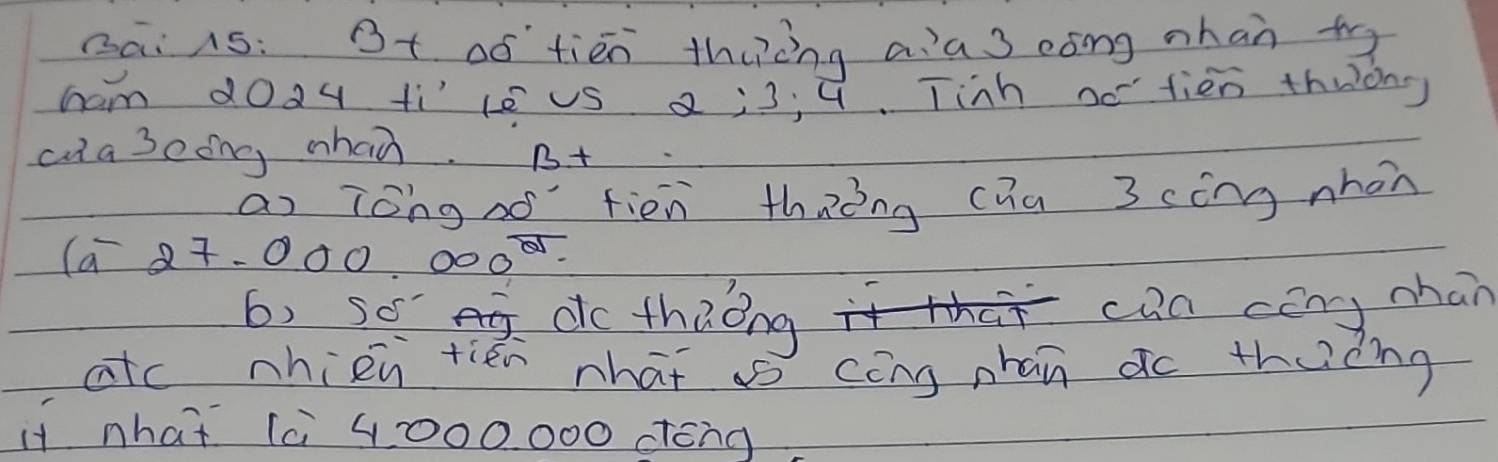 Bài 15: Bt số tiền thưởng của 3 công nhân trg
năm 2024 tỉ lệ vs 2; 3; 4. Tính số tiền thưởng
của 3 công nhân. Bt
a) Tổng số tiền thưởng của 3 công nhân
là 27.000.000đ.
b) Số đc thưởng của công nhân
đtc nhiều tiền nhất so công nhân đc thưởng
ít nhất là 4.000.000 đồng